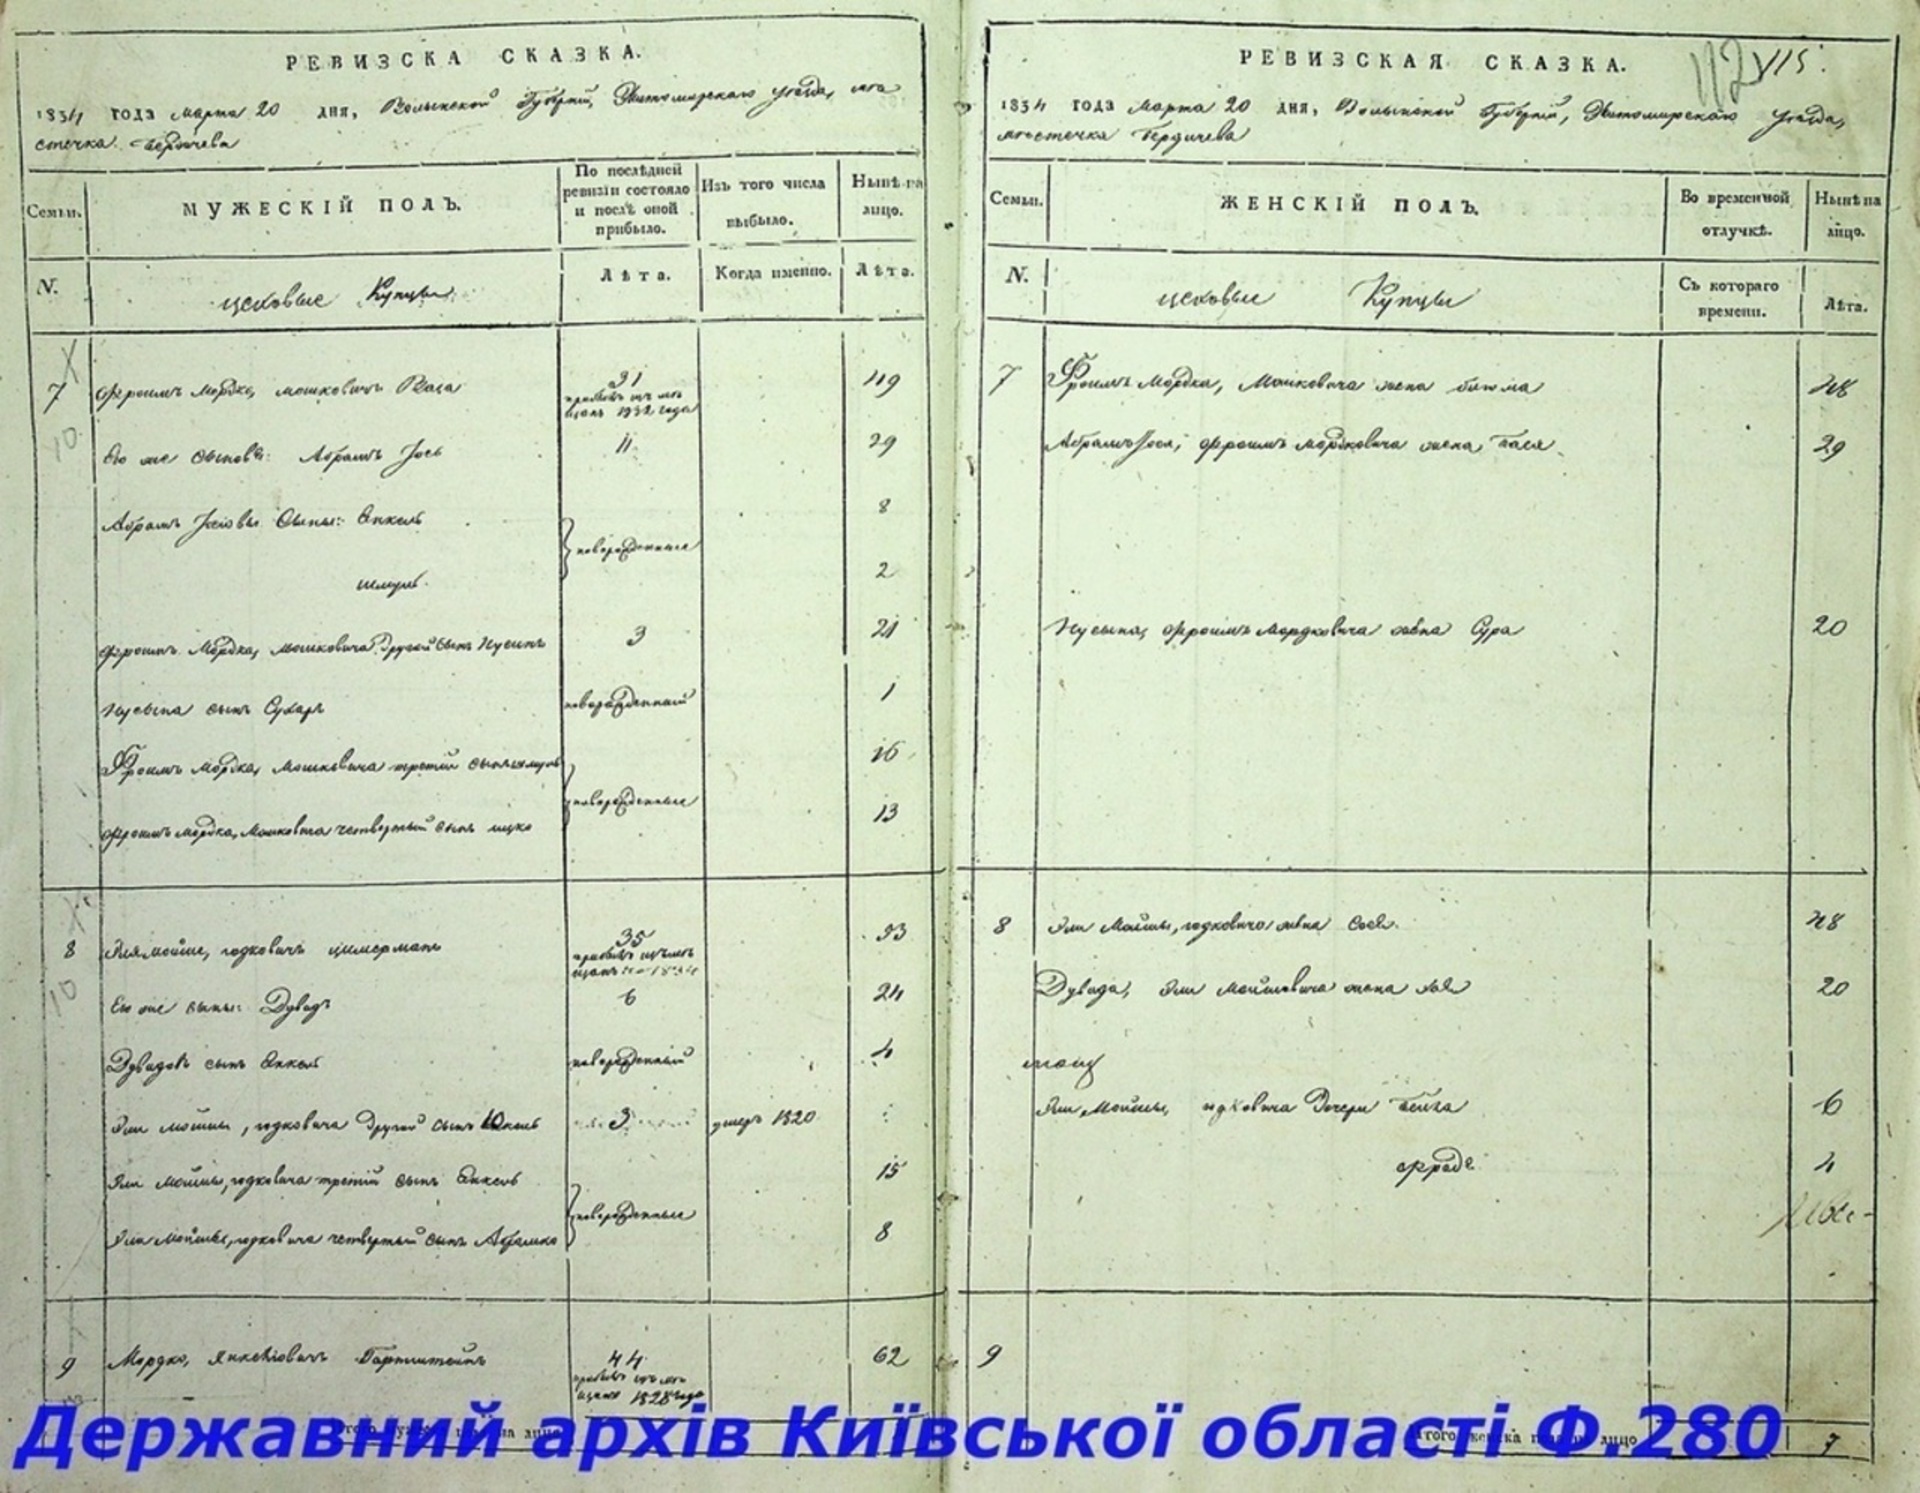 РЕВИЗСКА СКАЗКА.
1834 года марта 20 дня, Волынской Губернiи, Житомирскаго уезда, мес
стечка Бердичева
Семьи.
МУЖЕСКIЙ ПОЛЪ.
По послѣдней ревизiи состояло и послѣ оной прибыло.
Изъ того числа выбыло.
Нынѣ на лицо.
N.
цеховые Купцы
Лѣта.
Когда именно.
Лѣта.
7 Фроимъ Мордко, мошковичъ 31 49
прибылъ 1832 года
Его же сыновья: Абрамъ Iось 11 29
Абрамъ Iосiовы Сыны: Янкель 8
новорожденные
шмуль 2
Фроимъ Мордка, мошковича другой сынъ Нусинъ 3 21
Нусына сынъ Сухаръ новорожденный 1
Фроимъ Мордка, Мошковича третiй сынъ шмуль 16
новорожденные
Фроимъ Мордка, Мошковича четвертый сынъ ицко 13
8 Эля мойше, юдковичъ цимерманъ 35 53
10 Его же сыны: Дувидъ 6 24
Дувидовъ сынъ Янкель новорожденный 4
Эли мойши, юдковича другой сынъ 3 умеръ 1820
Эли мойши, юдковича третiй сынъ Янкель 15
новорожденные
Эли Мойши, юдковича четвертый сынъ Абрамко 8
9 Мордко, Янкелiовичъ 44 62
1828 года
РЕВИЗСКАЯ СКАЗКА.
112 115.
1834 года марта 20 дня, Волынской Губернiи, Житомирскаго уезда,
местечка Бердичева
Семьи.
ЖЕНСКIЙ ПОЛЪ.
Во временной отлучкѣ.
Нынѣ на лицо.
N.
цеховые Купцы
Съ котораго времени.
Лѣта.
7 Фроимъ Мордка, Мошковича жена 48
Абрамъ Iося, Фроимъ мордковича жена Бася 29
Нусына, Фроимъ Мордковича жена Сура 20
8 Эли Мойши, юдковича жена 48
Дувида, Эли Мойшовича жена 20
Эли Мойши, юдковича Дочери Бейла 6
фрада 4
9
Итого женска полу на лицо 7
Державний архів Київської області Ф.280